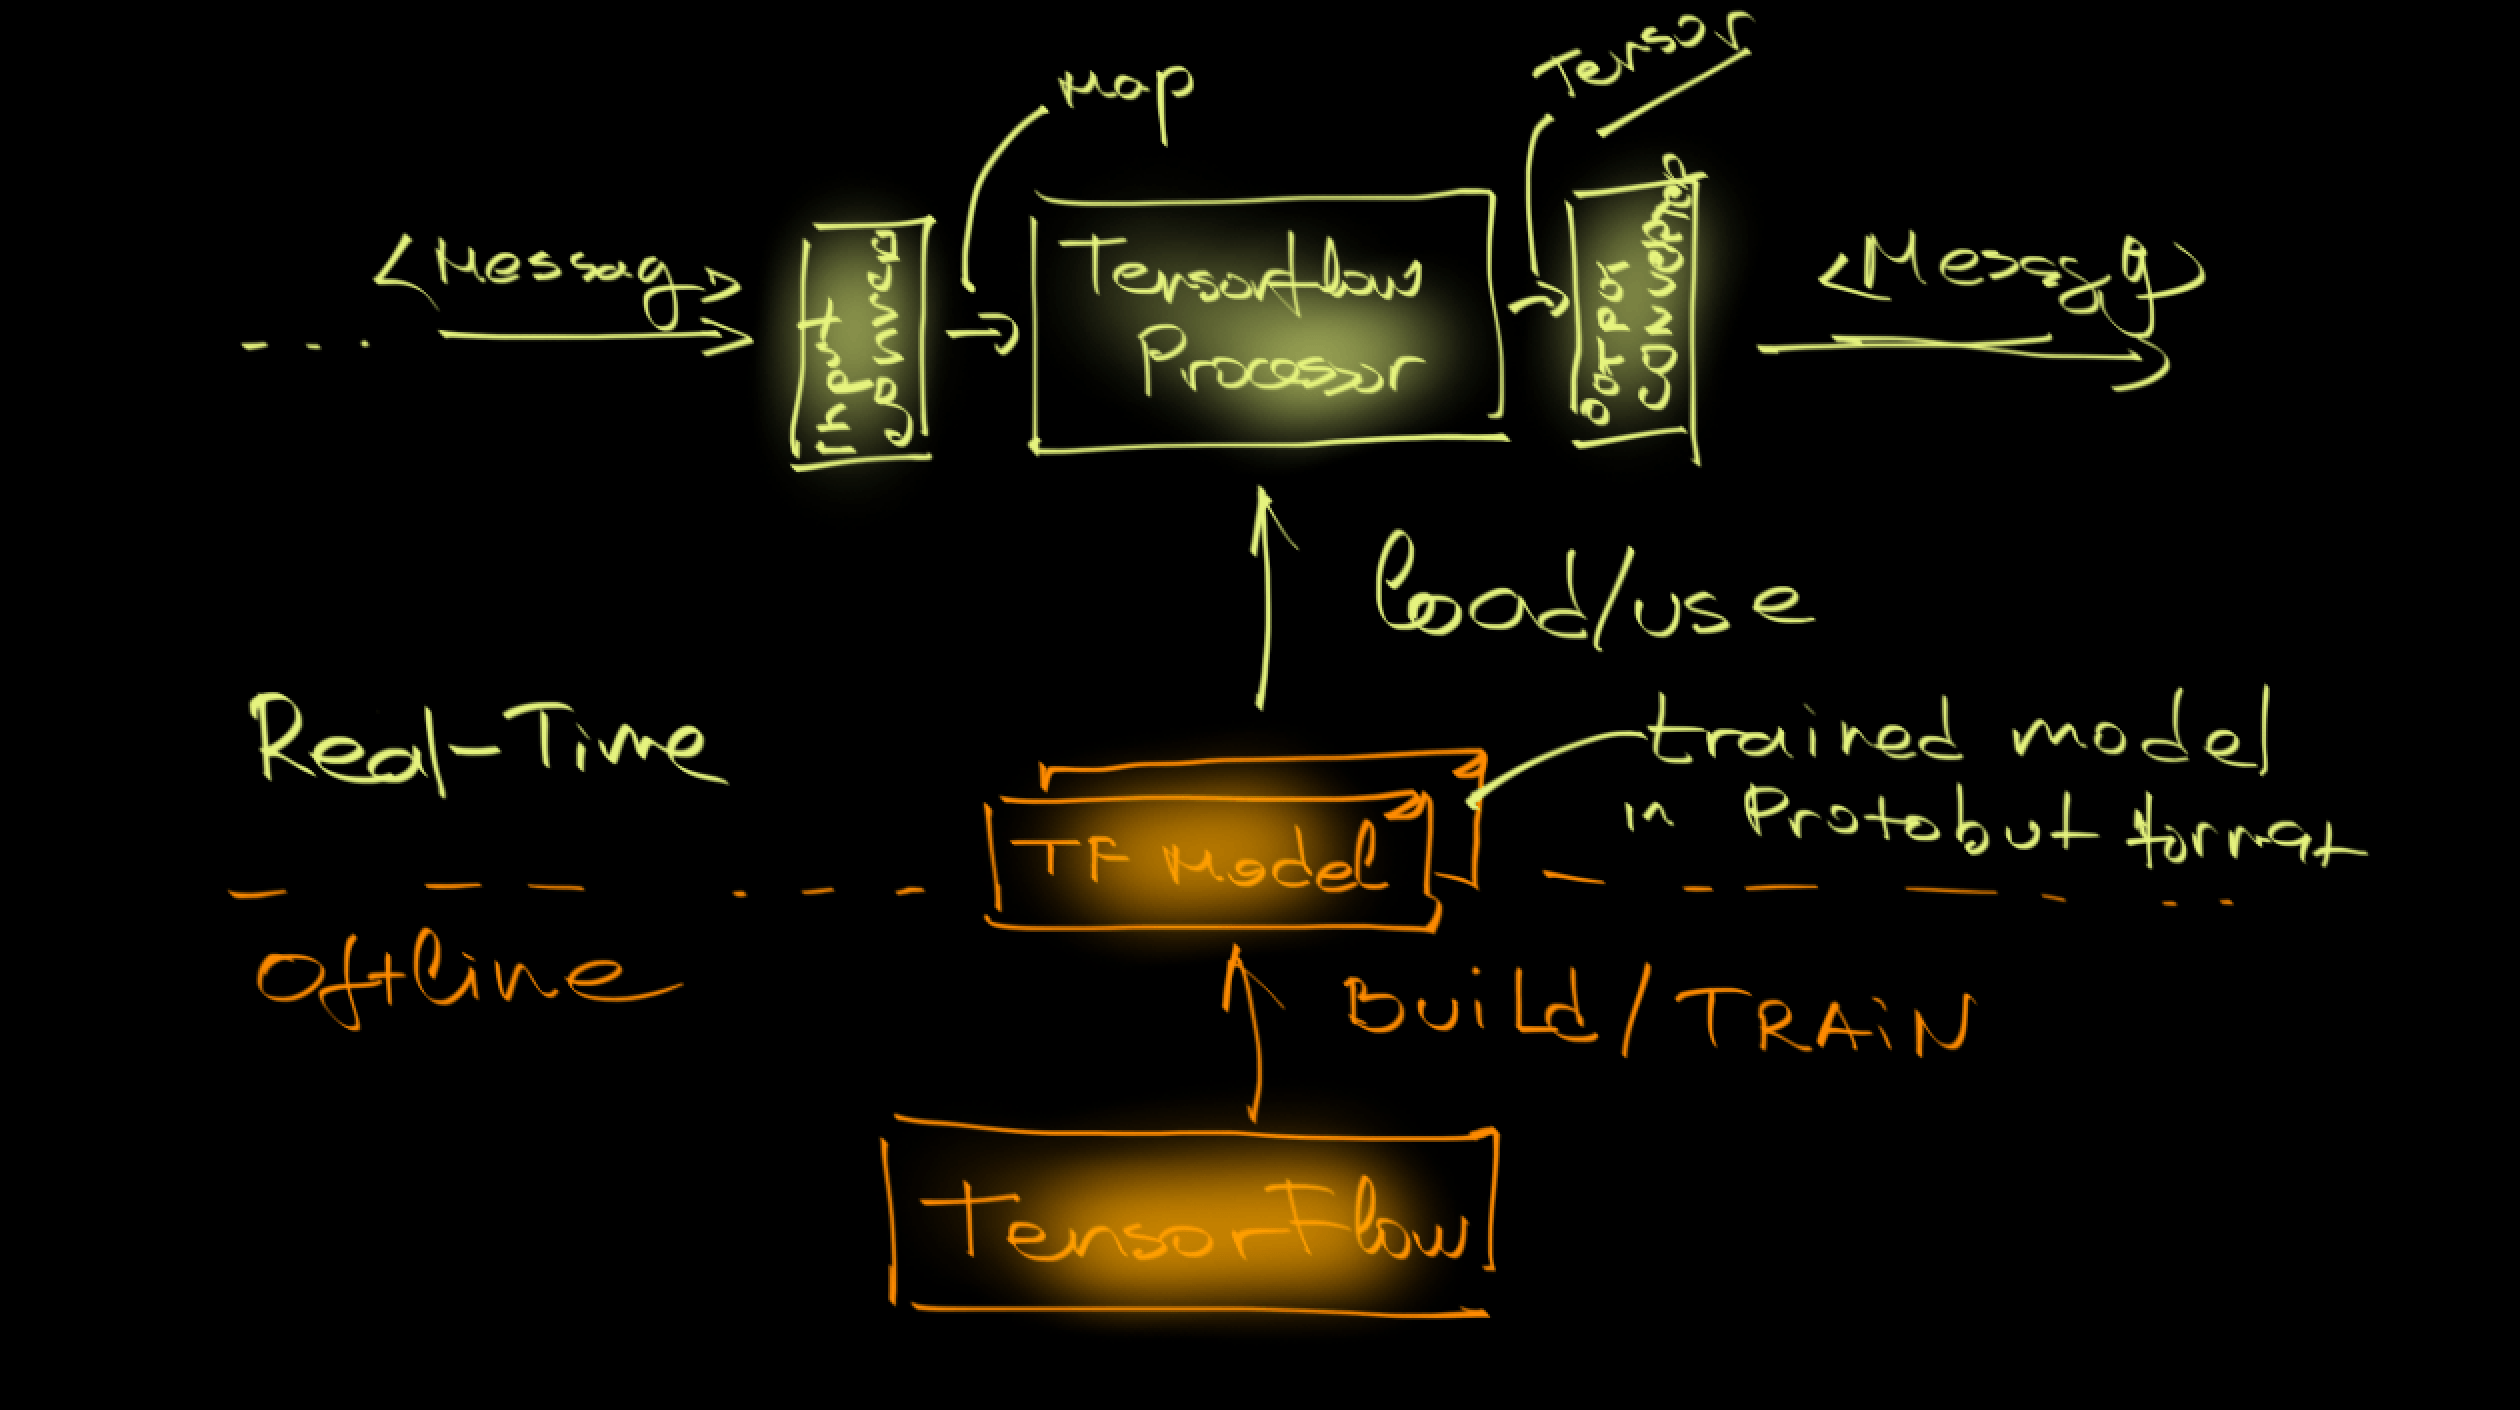 Map
Tensor
<Messag>
Input
Conver
Tensorflow
Processor
OUTPUT
CONVERTER
<Messag>
load/use
Real-Time
trained model
in Protobuf format
TF Model
Offline
BUiLd/TRAiN
TensorFlow